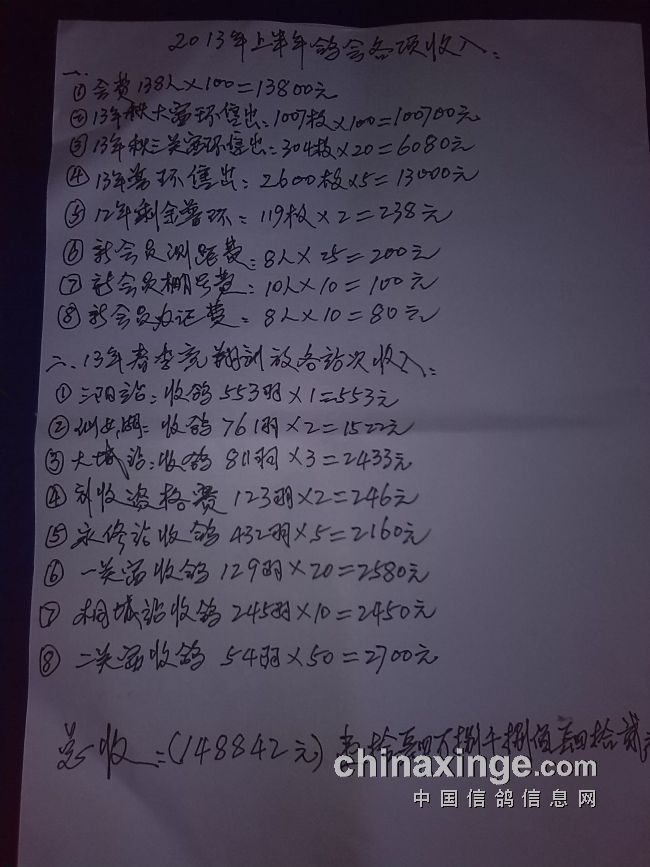 2013年上半年鸽会各项收入:
一、
① 会费138人×100=13800元
② 13年秋大富环售出:1007枚×100=100700元
③ 13年秋三关富环售出:304枚×20=6080元
④ 13年普环售出:2600枚×5=13000元
⑤ 12年剩余普环:119枚×2=238元
⑥ 新会员测距费:8人×25=200元
⑦ 新会员棚号费:10人×10=100元
⑧ 新会员办证费:8人×10=80元
二、13年春季竞翔训放各站次收入:
① 站:收鸽553羽×1=553元
② 收鸽761羽×2=1522元
③ 大城站:收鸽811羽×3=2433元
④ 收资格费123羽×2=246元
⑤ 永修站收鸽432羽×5=2160元
⑥ 一关富收鸽129羽×20=2580元
⑦ 桐城站收鸽245羽×10=2450元
⑧ 二关富收鸽54羽×50=2700元
总收:(148842元)壹拾肆万捌千捌佰肆拾贰
chinaxinge.com
中国信鸽信息网